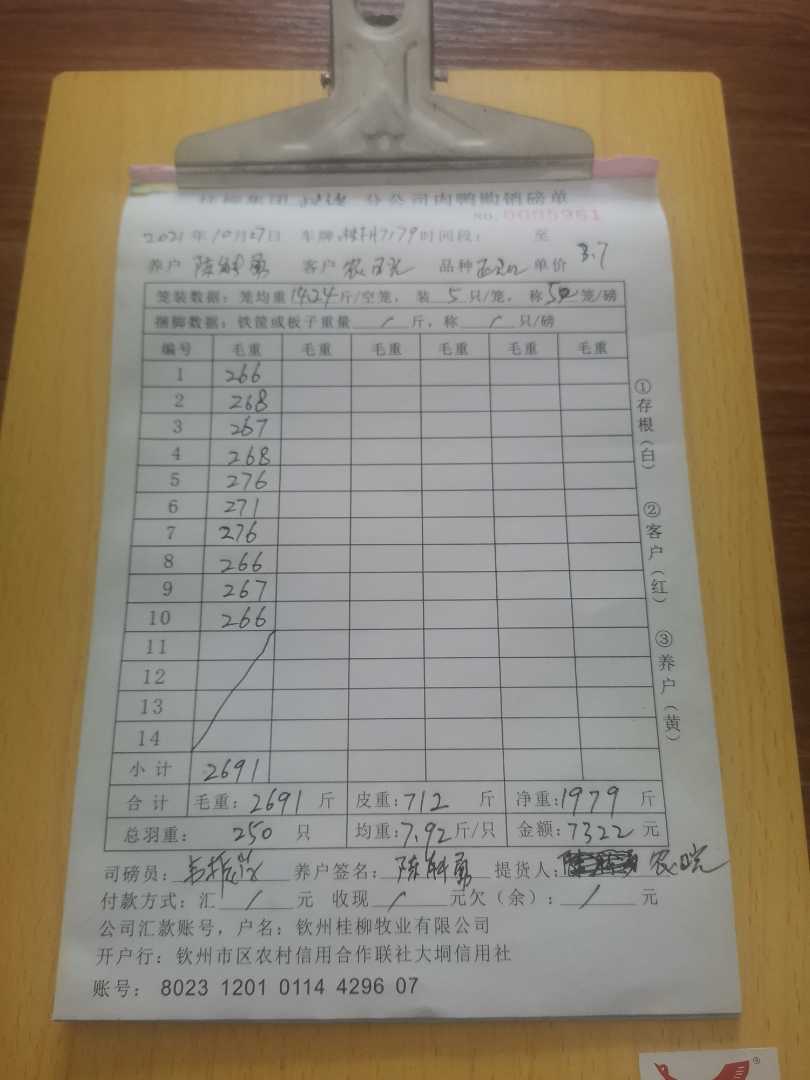 分公司肉鸭购销磅单
NO.0095961
2021年10月27日 车牌: 7179时间段: 至
养户 陈 勇 客户 农 品种 单价 3.7
笼装数据：笼均重14.24斤/空笼，装 5 只/笼，称 笼/磅
捆脚数据：铁筐或板子重量 / 斤，称 / 只/磅
编号 毛重 毛重 毛重 毛重 毛重 毛重
1 266
2 268
3 267
4 268
5 276
6 271
7 276
8 266
9 267
10 266
11
12
13
14
小计 2691
合计 毛重:2691 斤 皮重:712 斤 净重:1979 斤
总羽重: 250 只 均重:7.92斤/只 金额:7322 元
司磅员: 养户签名: 陈 勇 提货人: 农
付款方式：汇 / 元 收现 / 元欠（余）: / 元
公司汇款账号，户名：钦州桂柳牧业有限公司
开户行：钦州市区农村信用合作联社大垌信用社
账号： 8023 1201 0114 4296 07
①存根（白） ②客户（红） ③养户（黄）